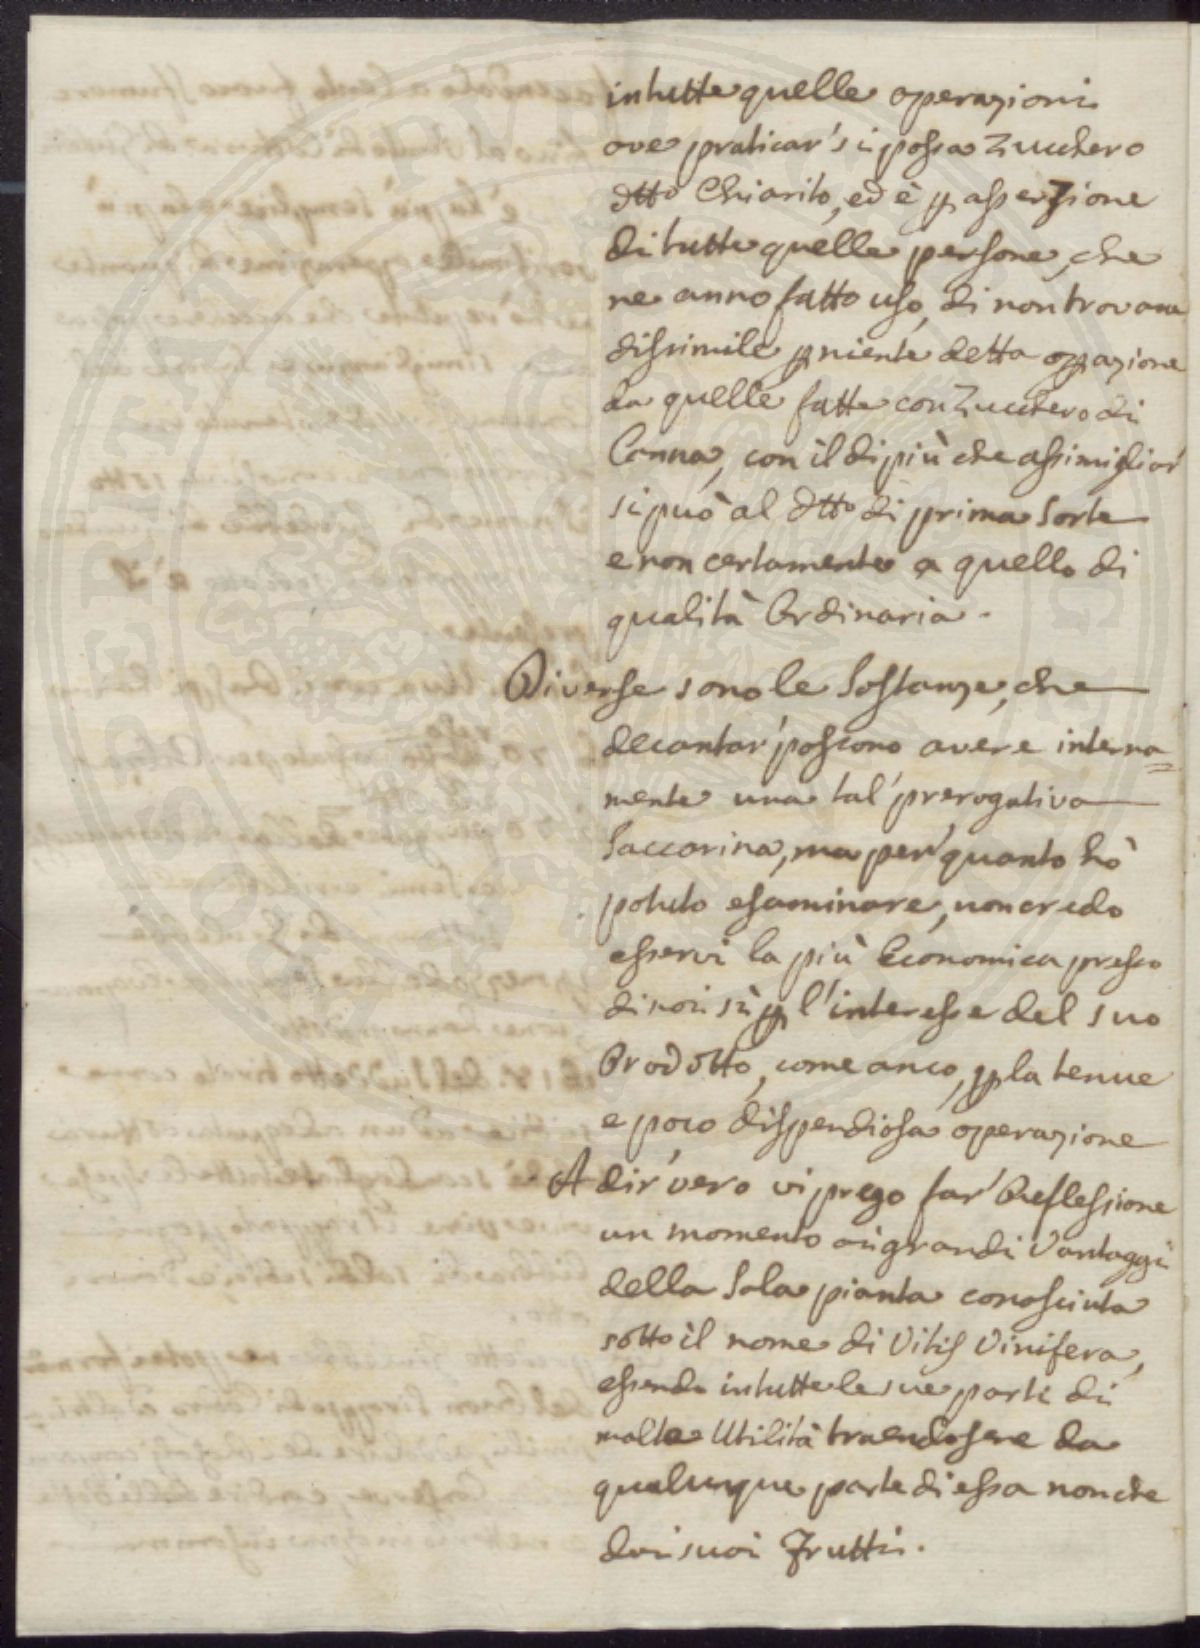 in tutte quelle operazioni
ove praticar si possa Zucchero
dtto Chiarito, ed è p asserzione
di tutte quelle persone, che
ne anno fatto uso, di non trovarsi
dissimile p niente detta oppazione
da quelle fatte con Zucchero di
Canna, con il di più che assimigliar
si può al dtto di prima Sorte
e non certamente a quello di
qualità Ordinaria.
Diverse sono le Sostanze, che
decantar' possono avere interna=
mente una tal' prerogativa
Saccarina, ma per' quanto hò
potuto esaminare, non credo
esservi la più Economica presso
di noi sì p l'interesse del suo
Prodotto, come anco, p la tenue
e poco dispendiosa operazione
A dir' vero vi prego far' Reflessione
un momento ai grandi Vantaggi
della Sola pianta conosciuta
sotto il nome di Vitis Vinifera,
essendo in tutte le sue parti di
molte Utilità traendosene da
qualunque parte di essa non che
dai suoi Frutti.